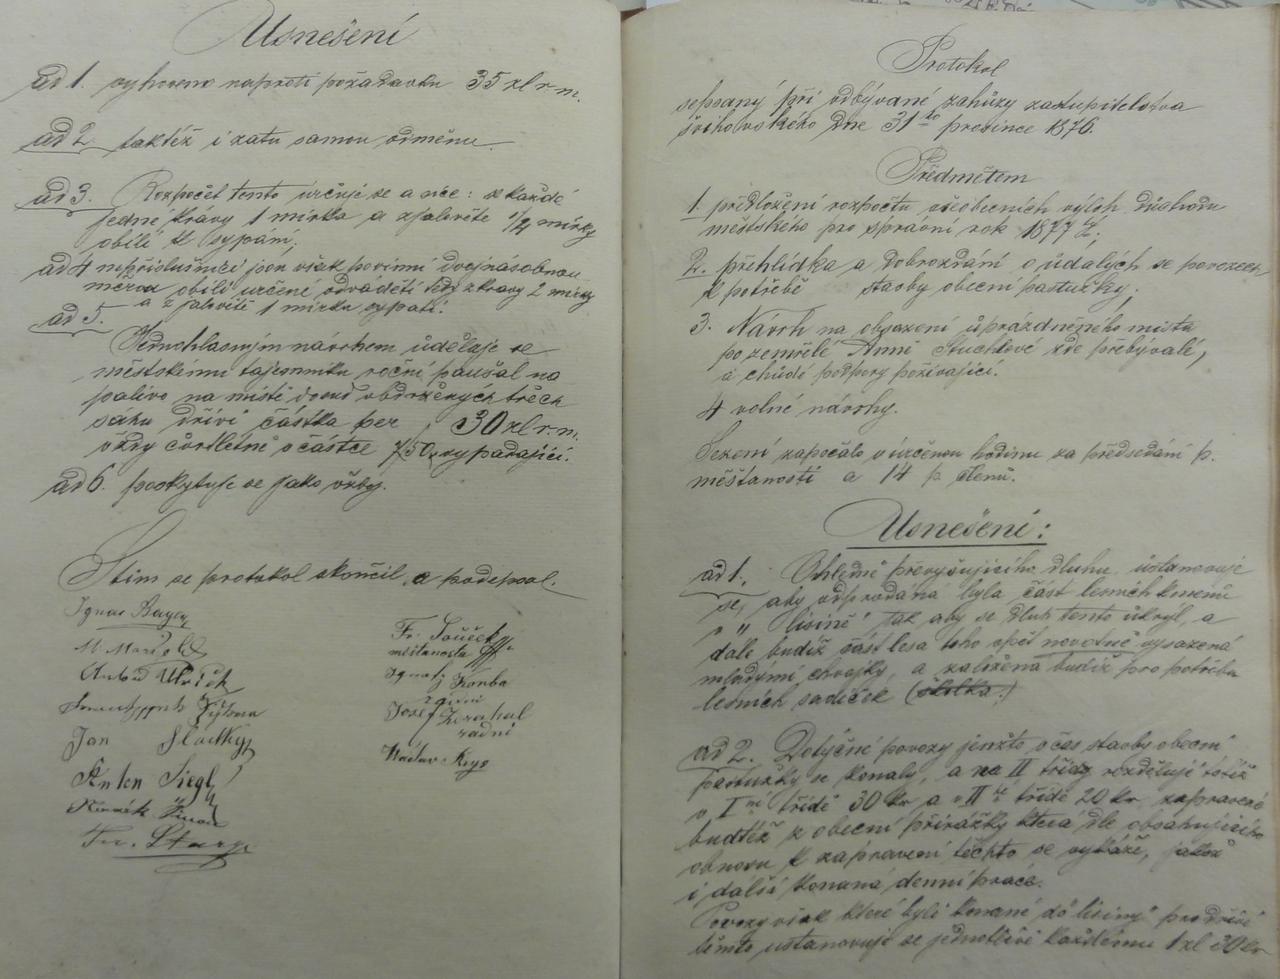 Usnešení
ad 1. vyhoveno naproti požadavku 35 zl r. m.
ad 2. taktéž i zatu samou odměnu.
ad 3. Rozpočet tento určuje se a sice: z každé
jedné krávy 1 mírka a z jalovětě 1/4 mírky
obilí k sypání;
ad 4 nepříslušníci jsou však povinni dvojnásobnou
obilí určené odváděti tedy z krávy 2 mírky
a z jalovětě 1 mírku sypati.
ad 5.
Jednohlasným návrhem uděluje se
městskému tajemníku roční paušál na
palivo na místě dosud obdržených třech
sáhů dříví částka per 30 zl r. m.
vždy čtvrtletně v částce 7/50 vypadající.
ad 6. poskytuje se jako vžby.
Stím se protokol skončil a podepsal.
Ignac Bayer
Fr. Souček
měštanosta
Ignatz Korba
Josef Zrzahal
radní
Jan Sladký
Václav
Anton Siegl
Fr.
Protokol
sepsaný při odbývané zahůzy zastupitelstva
švihovského dne 31ho prosince 1876.
Předmětem
1. předložení rozpočtu všeobecních výloh důchodu
městského pro správní rok 1877
2. přehlídka a dobrozdání o údalých se povozech
k potřebě stavby obecní pastušky;
3. Návrh na obsazení uprázdněného místa
po zemřelé Anně Stuchlové zde přebývalé,
a chudé podpory požívající.
4 volné návrhy.
Sezení započalo v určenou hodinu za předsedání p.
měšťanosti a 14 p. členů.
Usnešení:
ad 1. Ohledně převyšujícího dluhu ustanovuje
se, aby odprodaná byla část lesních kmenů
v „lisině“ tak aby se dluh tento ukryl, a
dále budiž část lesa toho opět novotně vysazená
mladými chvojky, a založena budiž pro potřebu
lesních sadiček (školka.)
ad 2. Dotýčné povozy jenžto v čas stavby obecní
pastušky se konaly, a na II třídy rozdělují totiž
v I ní třídě 30 kr a v II té třídě 20 kr zapravené
budtěž z obecní přirážky která dle obsahujícího
obnosu k zapravení těchto se vykáže, jakož
i další konaná denní práce.
Povozy však které byli konané do „lisiny“ pro dříví
těmto ustanovuje se jednotlivě každému 1 zl 30 kr